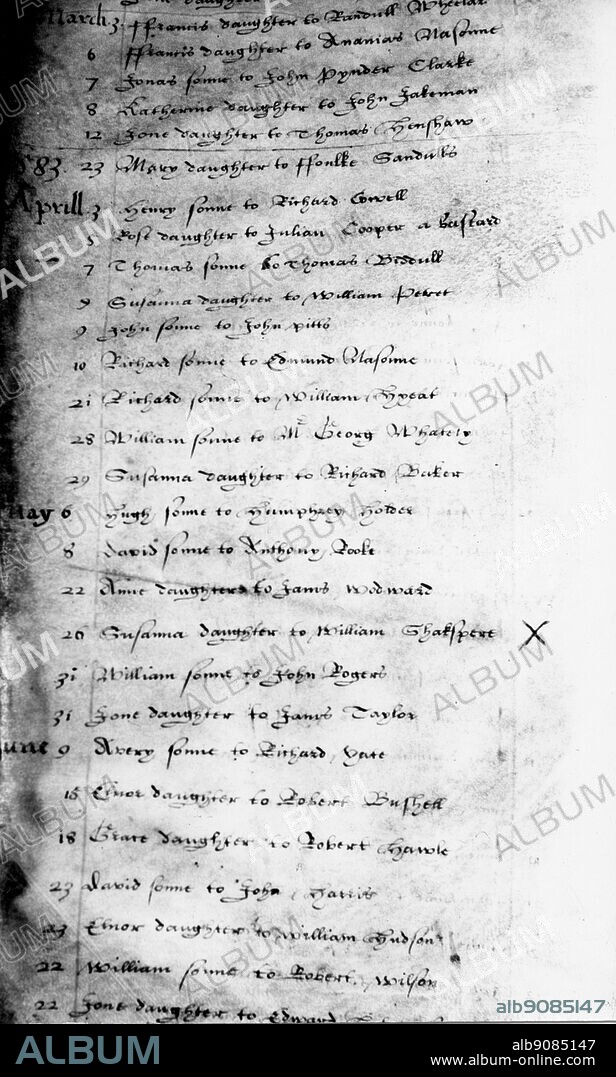 March 3 ffrancis daughter to Randull
6 ffrancis daughter to Ananias Nasonne
7 Jonas sonne to John Pynder Clarke
8 Katherine daughter to John Jakeman
12 Jone daughter to Thomas Henshaw
1583 23 Mary daughter to ffoulke Sandells
Aprill 3 Henry sonne to Richard Cowell
5 Rose daughter to Julian Cooper a bastard
7 Thomas sonne to Thomas Biddull
9 Susanna daughter to William Peret
9 John sonne to John pitts
10 Richard sonne to Edmund Nasonne
21 Richard sonne to William Hyeat
28 William sonne to Mr Georg Whately
29 Susanna daughter to Richard Baker
May 6 Hugh sonne to Humphrey Holder
8 David sonne to Anthony Rooke
22 Anne daughter to James Wodward
26 Susanna daughter to William Shakspere X
31 William sonne to John Rogers
31 Jone daughter to James Taylor
June 9 Avery sonne to Richard Yate
15 Elnor daughter to Robert Bushell
18 Grace daughter to Robert Hawle
23 David sonne to John Harris
23 Elnor daughter to William Hudson
22 William sonne to Robert Wilson
22 Jone daughter to Edward
ALBUM
alb9085147
ALBUM
alb9085147
www.album-online.com